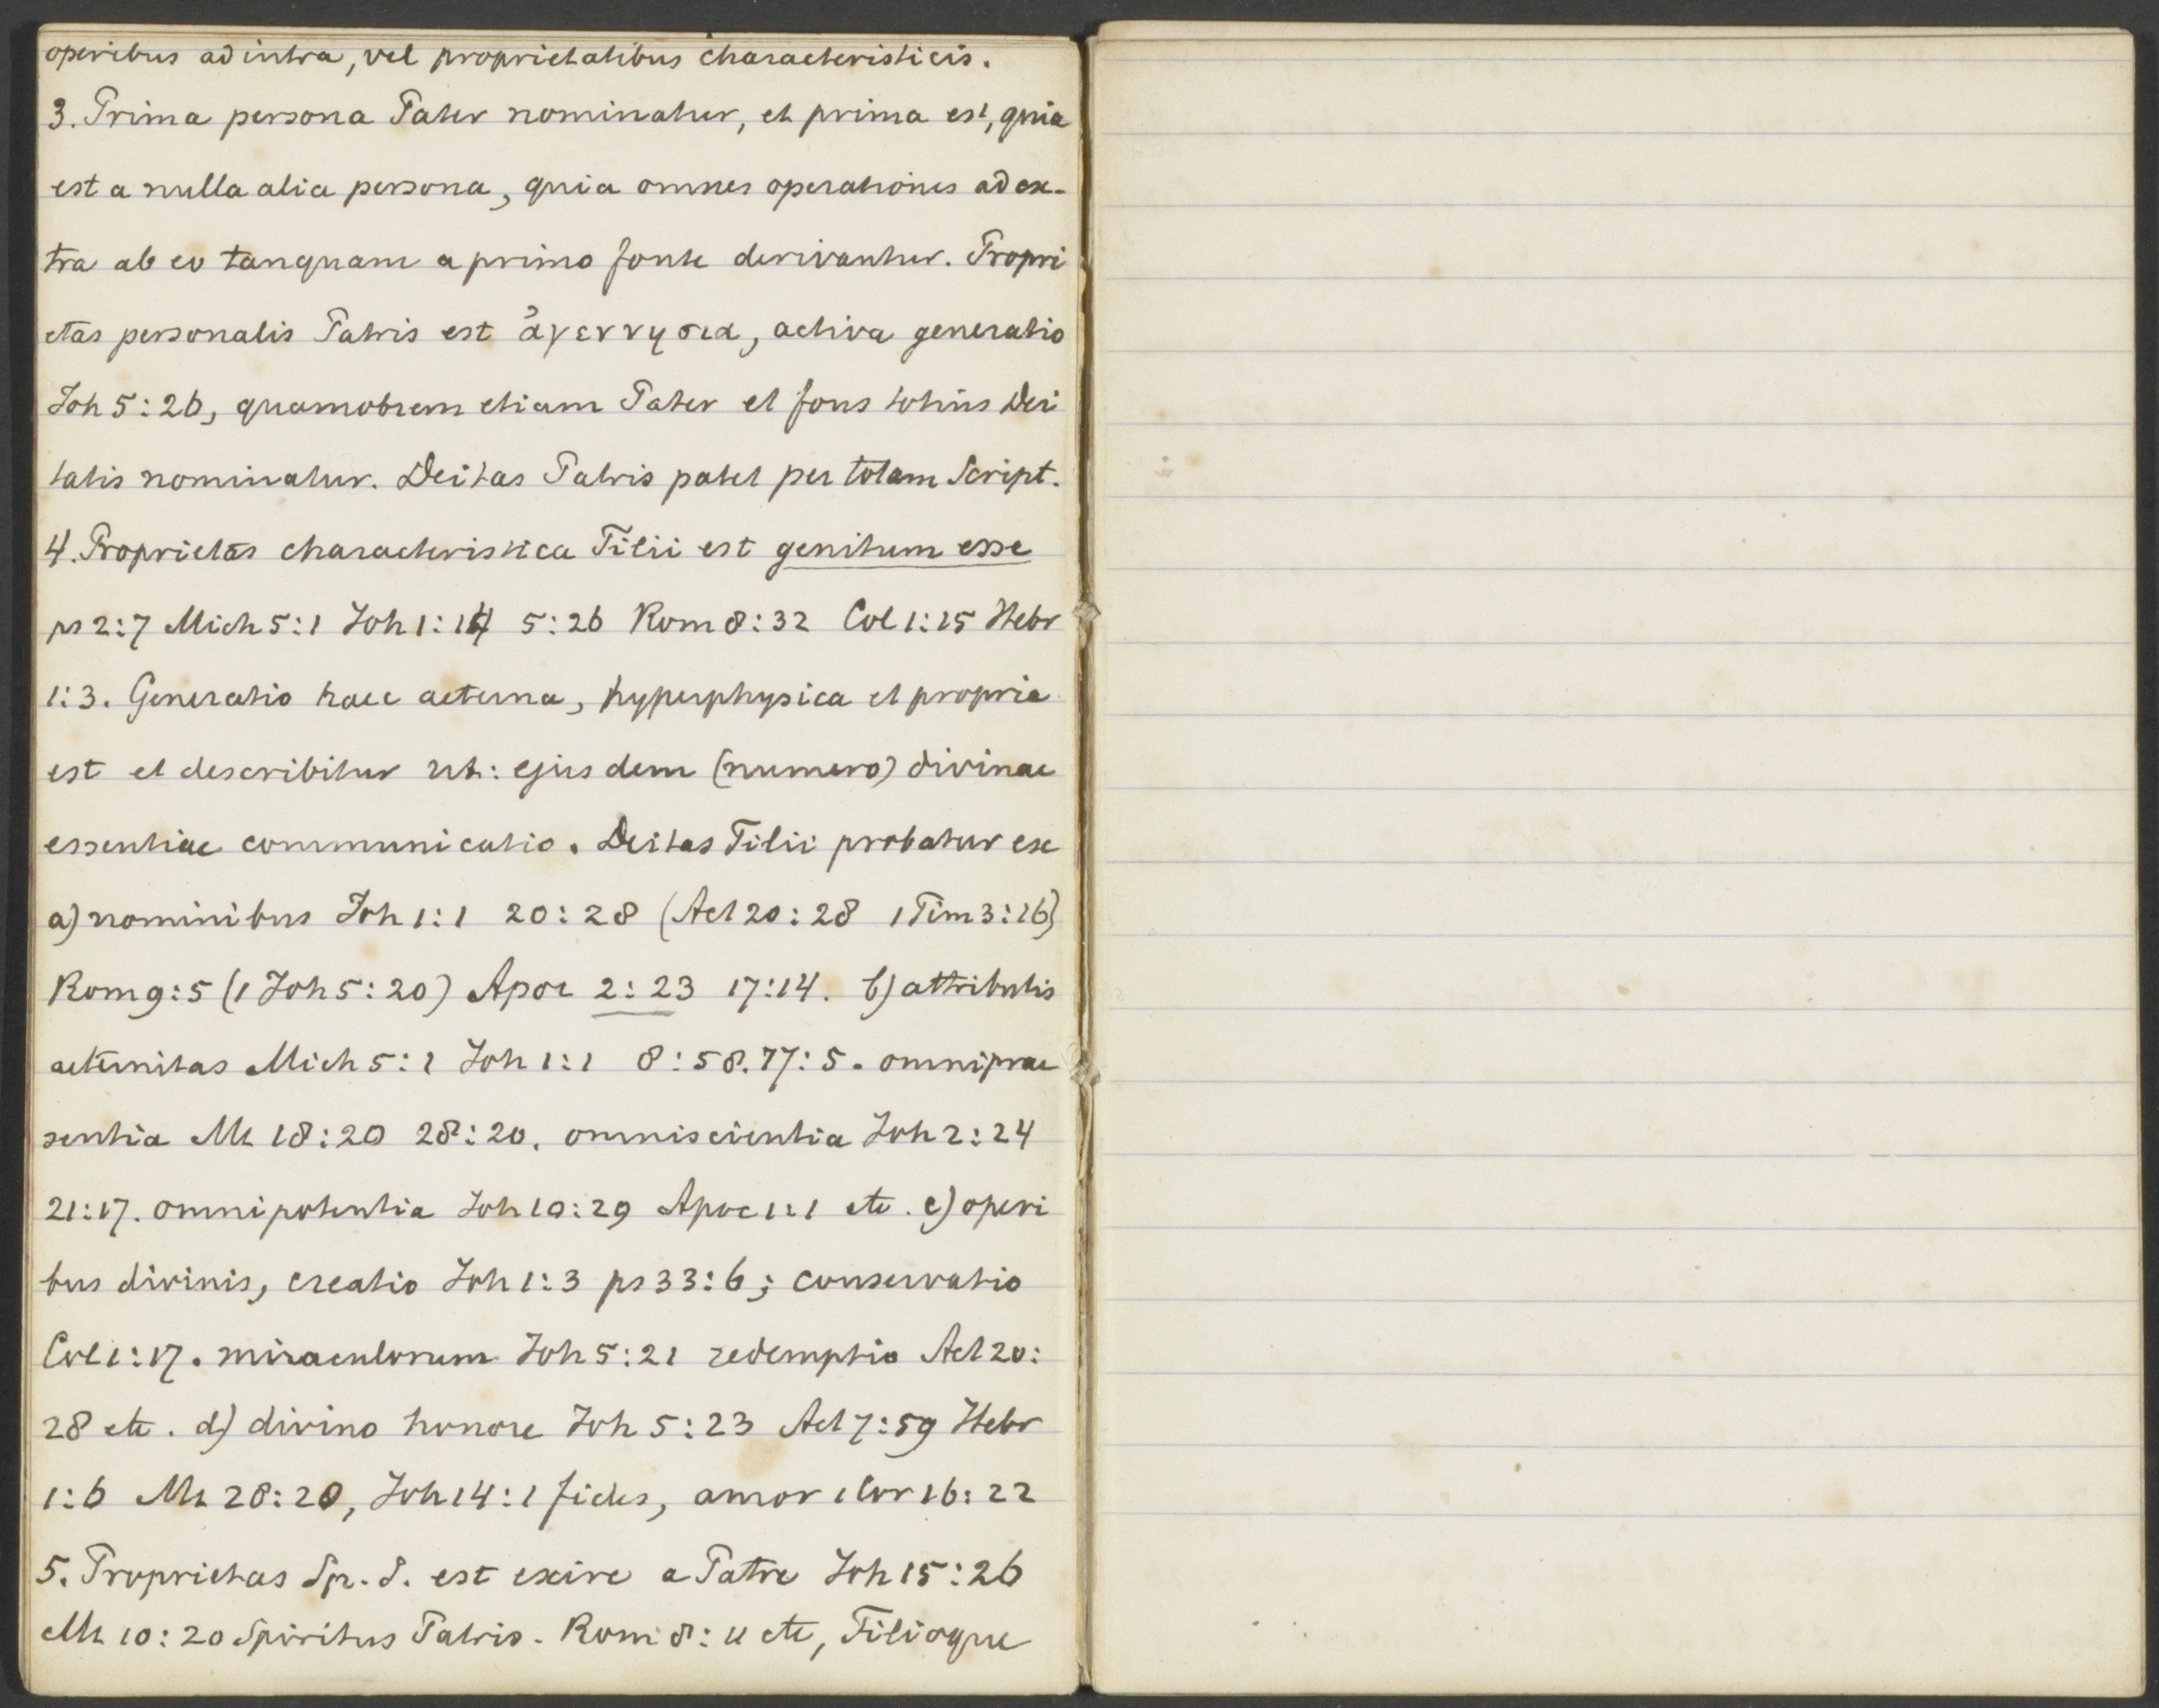 operibus ad intra, vel proprietatibus characteristicis.
3. Prima persona Pater nominatur, et prima est, quia
est a nulla alia persona, quia omnes operationes ad ex-
tra ab eo tanquam a primo fonte derivantur. Propri
etas personalis Patris est ἀγεννησια, activa generatio
Joh 5:26, quamobrem etiam Pater et fons totius Dei
tatis nominatur. Deitas Patris patet per totam Script.
4. Proprietas characteristica Filii est genitum esse
ps 2:7 Mich 5:1 Joh 1:14 5:26 Rom 8:32 Col 1:15 Hebr
1:3. Generatio haec aeterna, hyperphysica et propria
est et describitur ut: ejusdem (numero) divinae
essentiae communicatio. Deitas Filii probatur ex
a) nominibus Joh 1:1 20:28 (Act 20:28 1 Tim 3:16)
Rom 9:5 (1 Joh 5:20) Apoc 2:23 17:14. b) attributis
aeternitas Mich 5:1 Joh 1:1 8:58. 17:5. omniprae
sentia Mt 18:20 28:20. omniscientia Joh 2:24
21:17. omnipotentia Joh 10:29 Apoc 1:1 etc. c) operi
bus divinis, creatio Joh 1:3 ps 33:6; conservatio
Col 1:17. miraculorum Joh 5:21 redemptio Act 20:
28 etc. d) divino honore Joh 5:23 Act 7:59 Hebr
1:6 Mt 28:20, Joh 14:1 fides, amor 1 Cor 16:22
5. Proprietas Sp. S. est exire a Patre Joh 15:26
Mt 10:20 Spiritus Patris. Rom 8:11 etc, Filioque